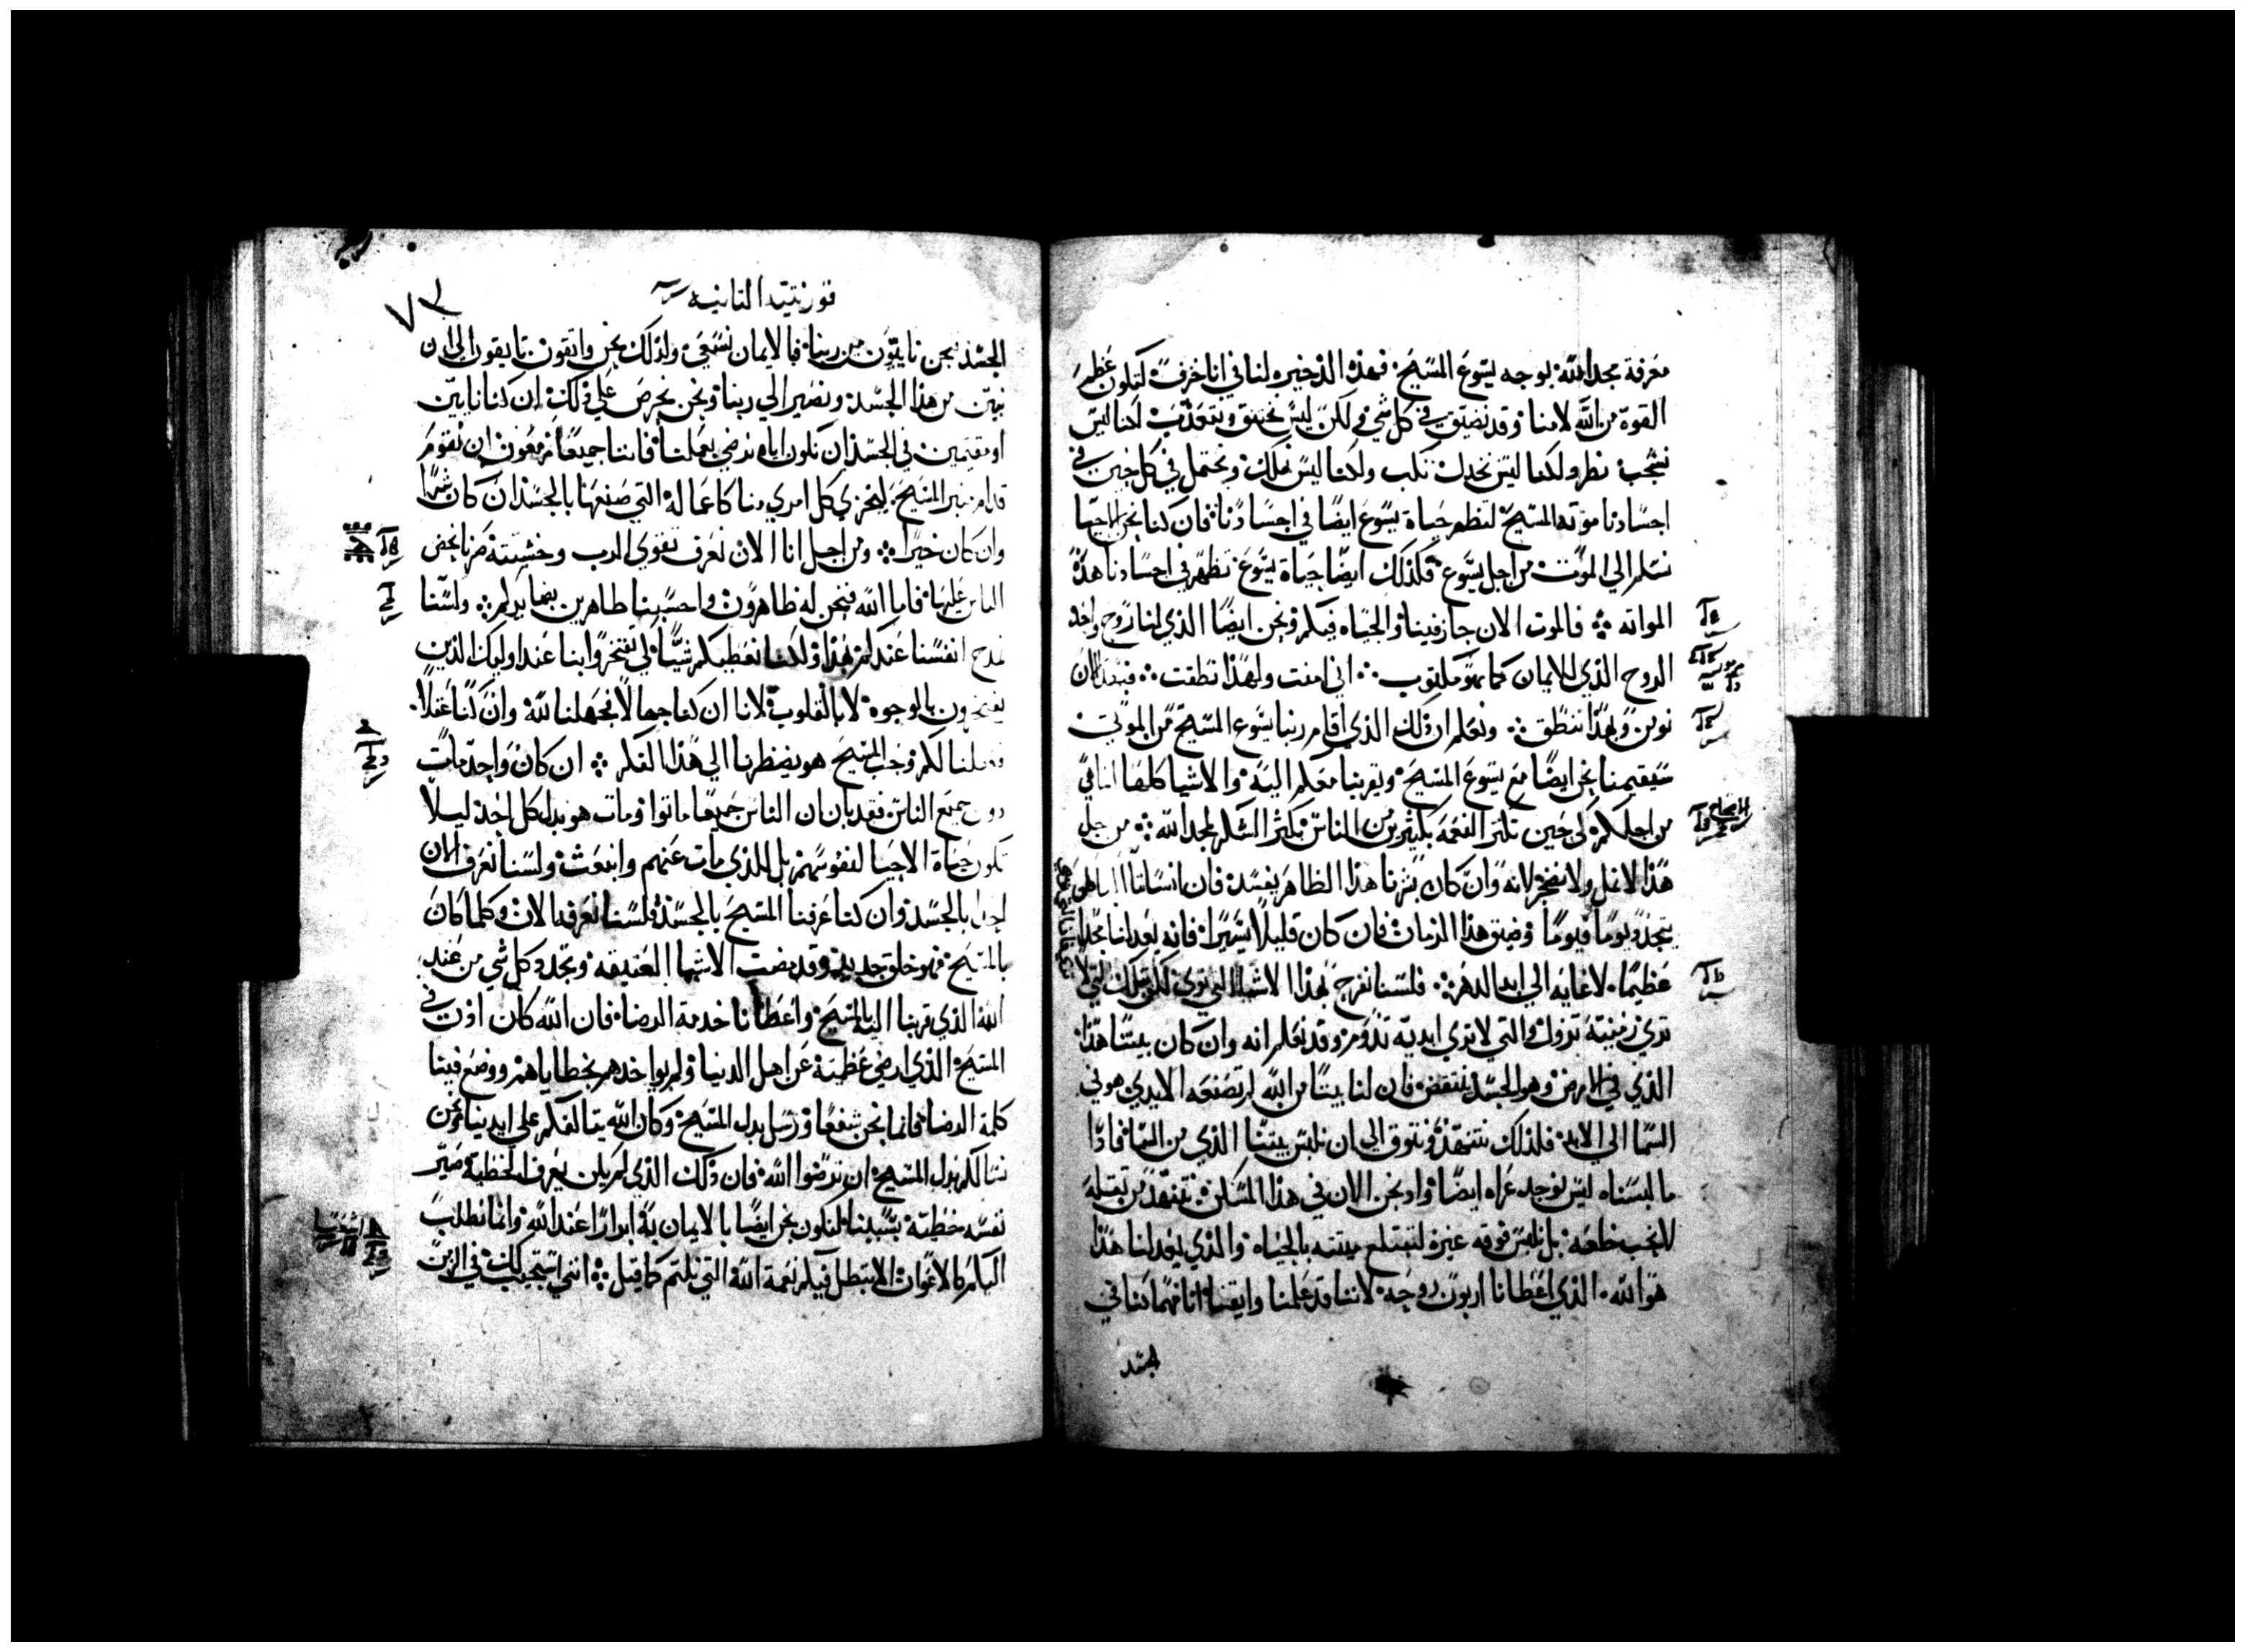 معرفة مجد الله بوجه يسوع المسيح فهذه الذخيره لنا في انا خزف لتكون عظم
القوة من الله لامنا وقد نضيق في كل شي ولكن ليس نختنق ونتعذب لكنا ليس
نشجب نطرد ولكنا ليس نخدل نكب ولكنا ليس نهلك ونحتمل في كل حين في
اجسادنا موتة المسيح لتظهر حياة يسوع ايضا في اجسادنا فان كنا نحن الاحيا
نسلم الي الموت من اجل يسوع فكذلك ايضا حياة يسوع تظهر في اجسادنا هذه
المواته فالموت الان جاز فينا والحياه فيكم ونحن ايضا الذي لنا روح واحد
الروح الذي للايمان كما هو مكتوب اني امنت ولهذا نطقت فنحن الان
نومن ولهذا ننطق ونعلم ان ذلك الذي اقام ربنا يسوع المسيح من الموتي
سيقيمنا نحن ايضا مع يسوع المسيح ويقربنا معكم اليه والاشيا كلها انما هي
من اجلكم لكي حين تكثر النعمه بكثيرين من الناس يكثر الشكر لمجد الله من اجل
هذا لا نمل ولا نضجر لانه وان كان بشرنا هذا الظاهر يفسد فان انساننا الباطن
يتجدد يوما فيوما وضيق هذا الزمان فان كان قليلا يسيرا فانه يعد لنا مجدا
عظيما لا غايه له الي ابد الدهر فلسنا نفرح بهذا الاشيا التي تري لكن بتلك التي لا
تري زمنية تزول والتي لا تري ابدية تدوم وقد نعلم انه وان كان بيتنا هذا
الذي في الارض وهو الجسد ينتقض فان لنا بيتا من الله لم تصنعه الايدي هو في
السما الي الابد فلذلك نتنهد ونتوق الي ان نلبس بيتنا الذي من السما فاذا
ما لبسناه ليس نوجد عراه ايضا واذ نحن الان في هذا المسكن نتنهد من ثقله
لا نحب خلعه بل نلبس فوقه غيره لتبتلع ميتته بالحياه والذي يعد لنا هذا
هو الله الذي اعطانا اربون روحه لاننا قد علمنا وايقنا انا مهما كنا في
الجسد
قورنتيه الثانيه
٧٣
الجسد فنحن نايئون من ربنا فبالايمان نسعي ولذلك نحن واثقون تايقون الي ان
نبين من هذا الجسد ونصير الي ربنا ونحن نحرص علي ذلك ان كنا نايين
او مقيمين في الجسد ان نكون اياه نرضي بعملنا فاننا جميعا مزمعون ان نقوم
قدام منبر المسيح ليجزي كل امري منا كاعماله التي صنعها بالجسد ان كان شرا
وان كان خيرا ومن اجل انا الان نعرف تقوي الرب وخشيته صرنا نحض
الناس عليها فاما الله فنحن له ظاهرون واحسبنا ظاهرين بضمايركم ولسنا
نمدح انفسنا عندكم بهذا ولكنا نعطيكم شيا لكي تفتخروا بنا عند اوليك الذين
يفتخرون بالوجوه لا بالقلوب لانا ان كنا جهالا فجهلنا لله وان كنا عقلا
فعقلنا لكم وحب المسيح هو يضطرنا الي هذا الفكر ان كان واحد مات
دون جميع الناس فقد بان ان الناس جميعا ماتوا ومات هو بدل كل احد ليلا
تكون حياة الاحيا لنفوسهم بل للذي مات عنهم وانبعث ولسنا نعرف الان
احدا بالجسد وان كنا عرفنا المسيح بالجسد فلسنا نعرفه الان وكلما كان
بالمسيح فهو خلق جديد وقد مضت الاشيا العتيقه وتجدد كل شي من عند
الله الذي قربنا اليه بالمسيح واعطانا خدمة الرضا فان الله كان اذن في
المسيح الذي ارضي عظمته عن اهل الدنيا ولم يواخدهم بخطاياهم ووضع فينا
كلمة الرضا فانما نحن شفعا ورسل بدل المسيح وكان الله يتالفكم علي ايدينا نحن
نسالكم بدل المسيح ان ترضوا الله فان ذلك الذي لم يكن يعرف الخطية صير
نفسه خطية بسببنا لنكون نحن ايضا بالايمان به ابرارا عند الله وانما نطلب
اليكم كالاعوان الا تبطل فيكم نعمة الله التي نلتم كما قيل انني استجيب لك في الزمن